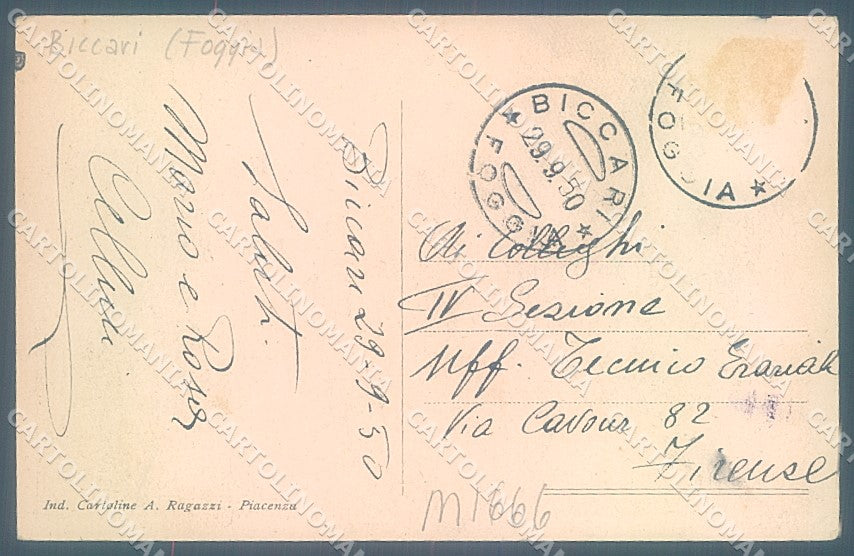 Biccari (Foggia)
Biccari 29-9-50
Saluti
Mario e Rosa
BICCARI
29.9.50
FOGGIA
FOGGIA
Ai Colleghi
IV Sezione
Uff. Tecnico Erariale
Via Cavour 82
Firenze
Ind. Cartoline A. Ragazzi - Piacenza
M1666
CARTOLINOMANIA